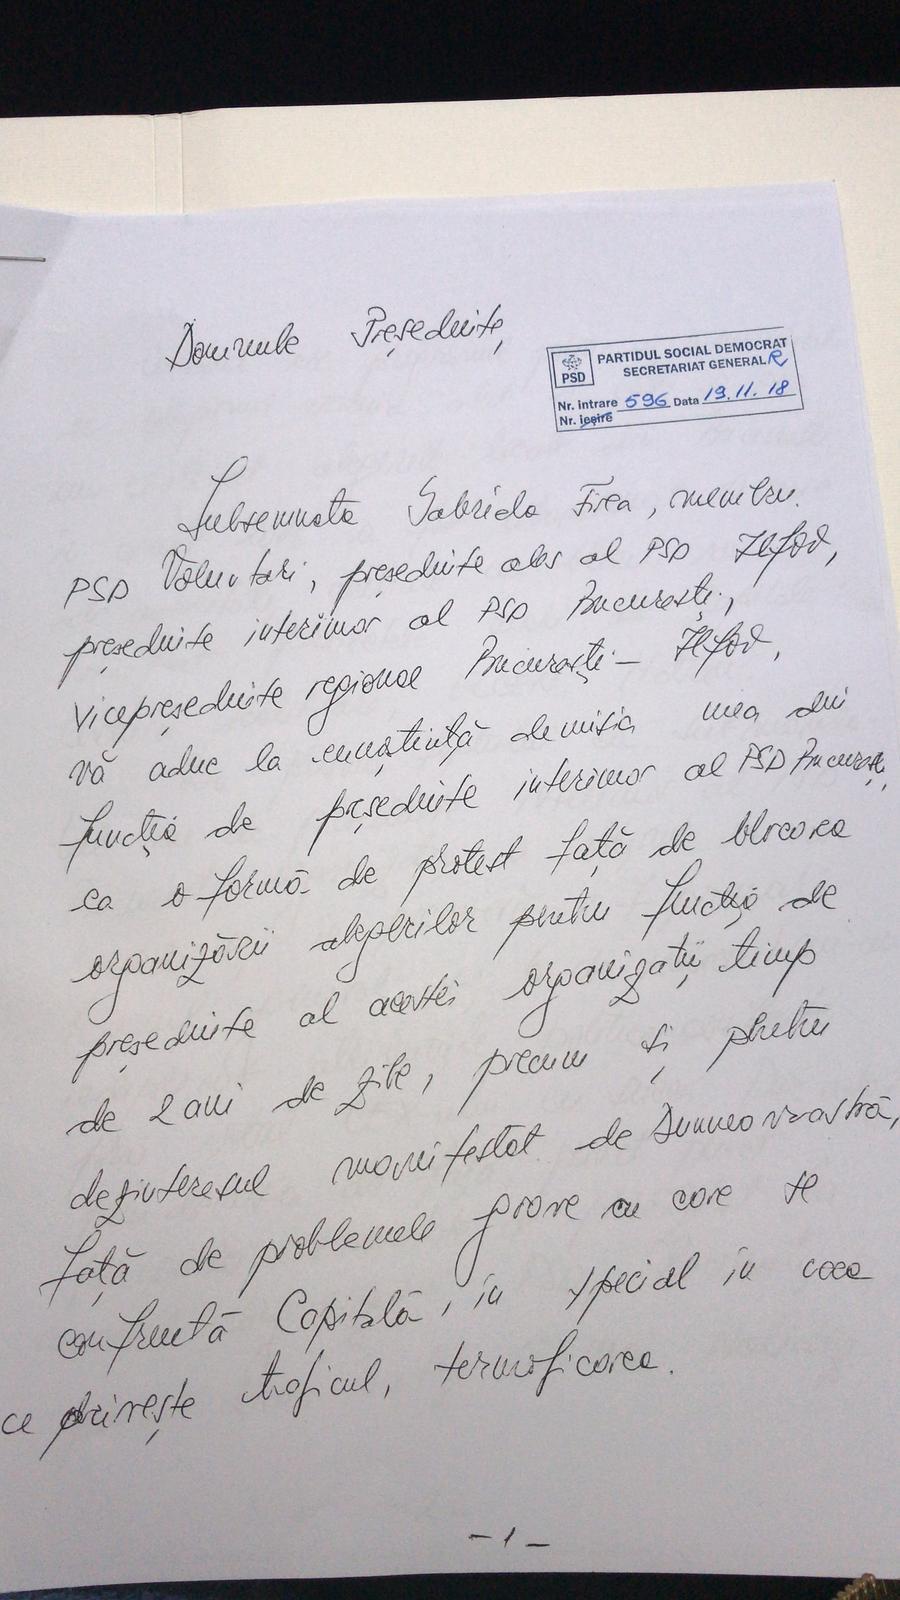 Domnule Președinte,
PSD
PARTIDUL SOCIAL DEMOCRAT
SECRETARIAT GENERAL
Nr. intrare 596 Data 19.11.18
Nr. ieșire
Subsemnata Gabriela Firea, membru
PSD Voluntari, președinte ales al PSD Ilfov,
președinte interimar al PSD București,
vicepreședinte regional București – Ilfov,
vă aduc la cunoștiință demisia mea din
funcția de președinte interimar al PSD București,
ca o formă de protest față de blocarea
organizării alegerilor pentru funcția de
președinte al acestei organizații, timp
de 2 ani de zile, precum și pentru
dezinteresul manifestat de Dumneavoastră,
față de problemele grave cu care se
confruntă Capitala, în special în ceea
ce privește traficul, termoficarea.
- 1 -